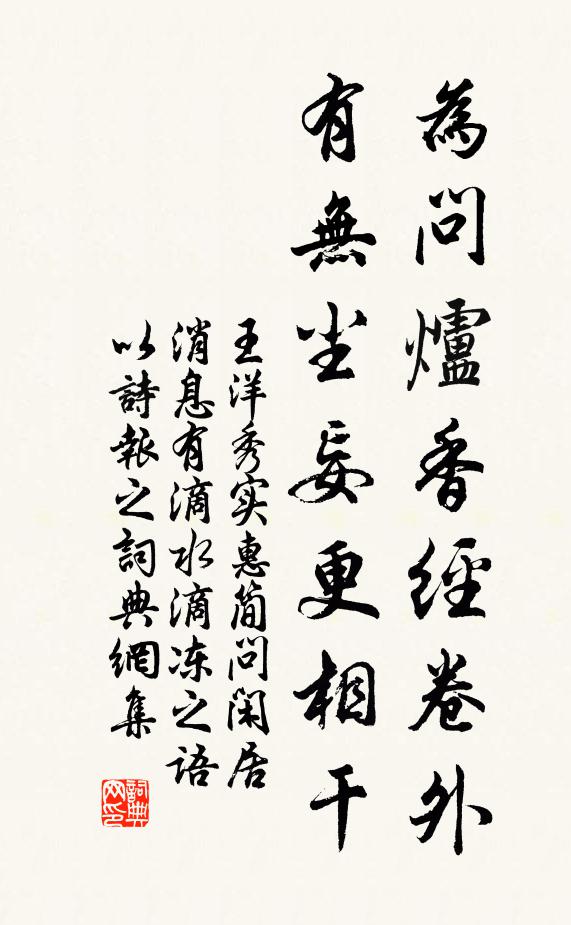 為問爐香經卷外
有無尘妄更相干
王洋秀实惠简問闲居
消息有滴水滴冻之语
以詩報之詞典網集
詞典網印